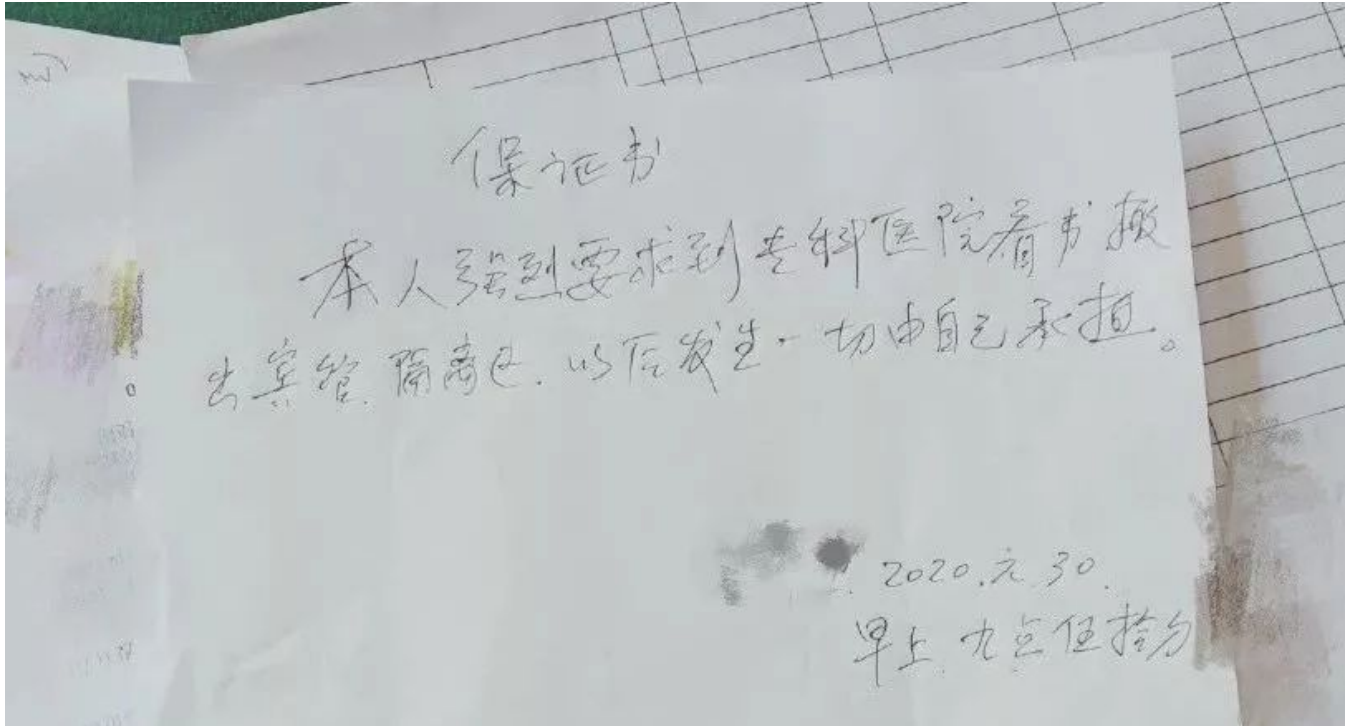 保证书
本人强烈要求到专科医院看书搬
出宾馆.隔离区.以后发生一切由自己承担。
2020.元.30.
早上.九点伍拾分